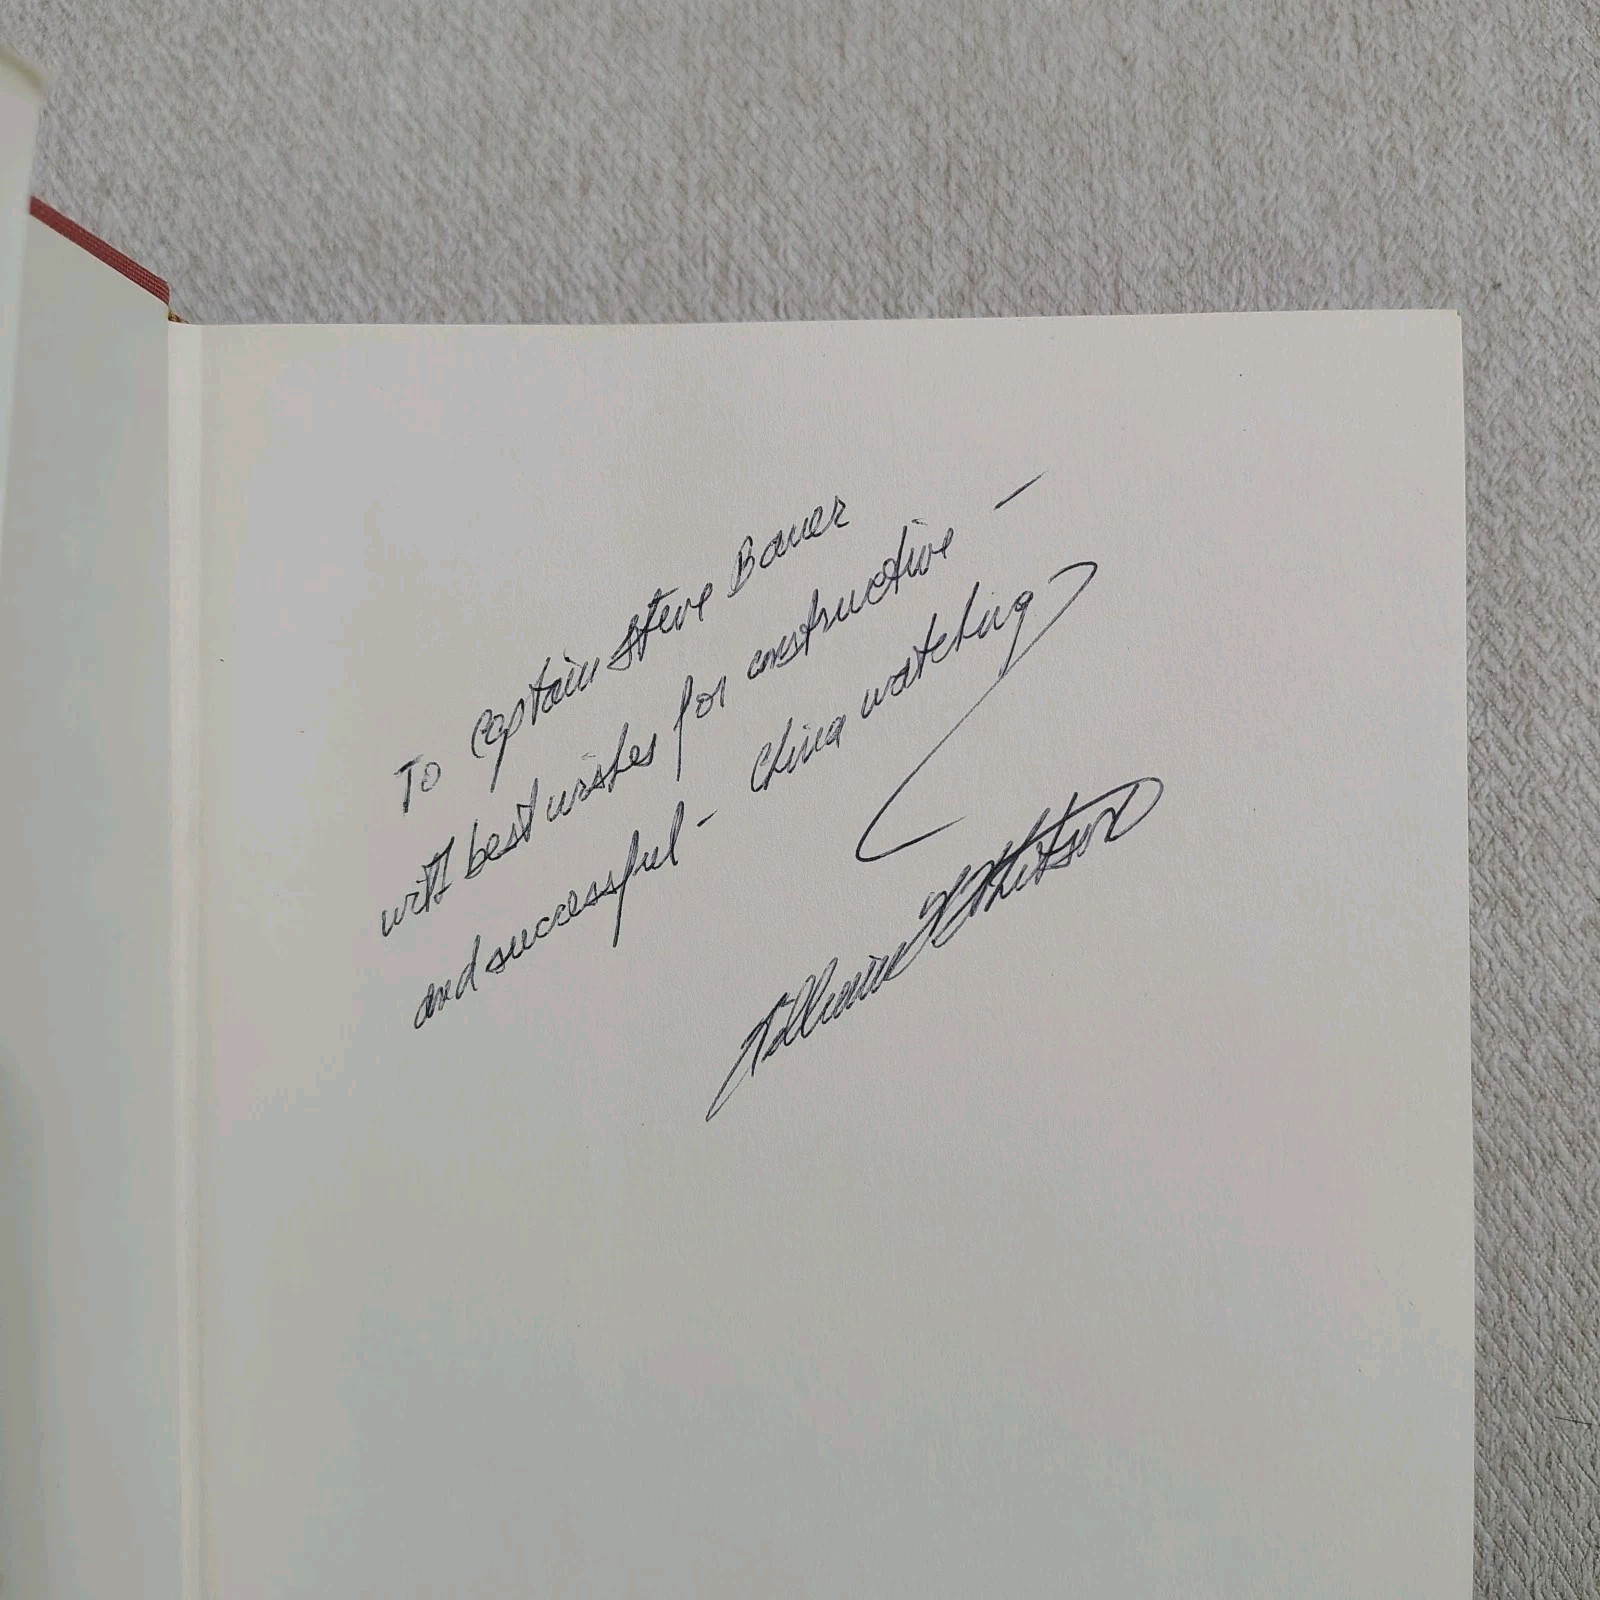 To Captain Steve Bauer
with best wishes for constructive -
and successful - China watching
William W Whitson